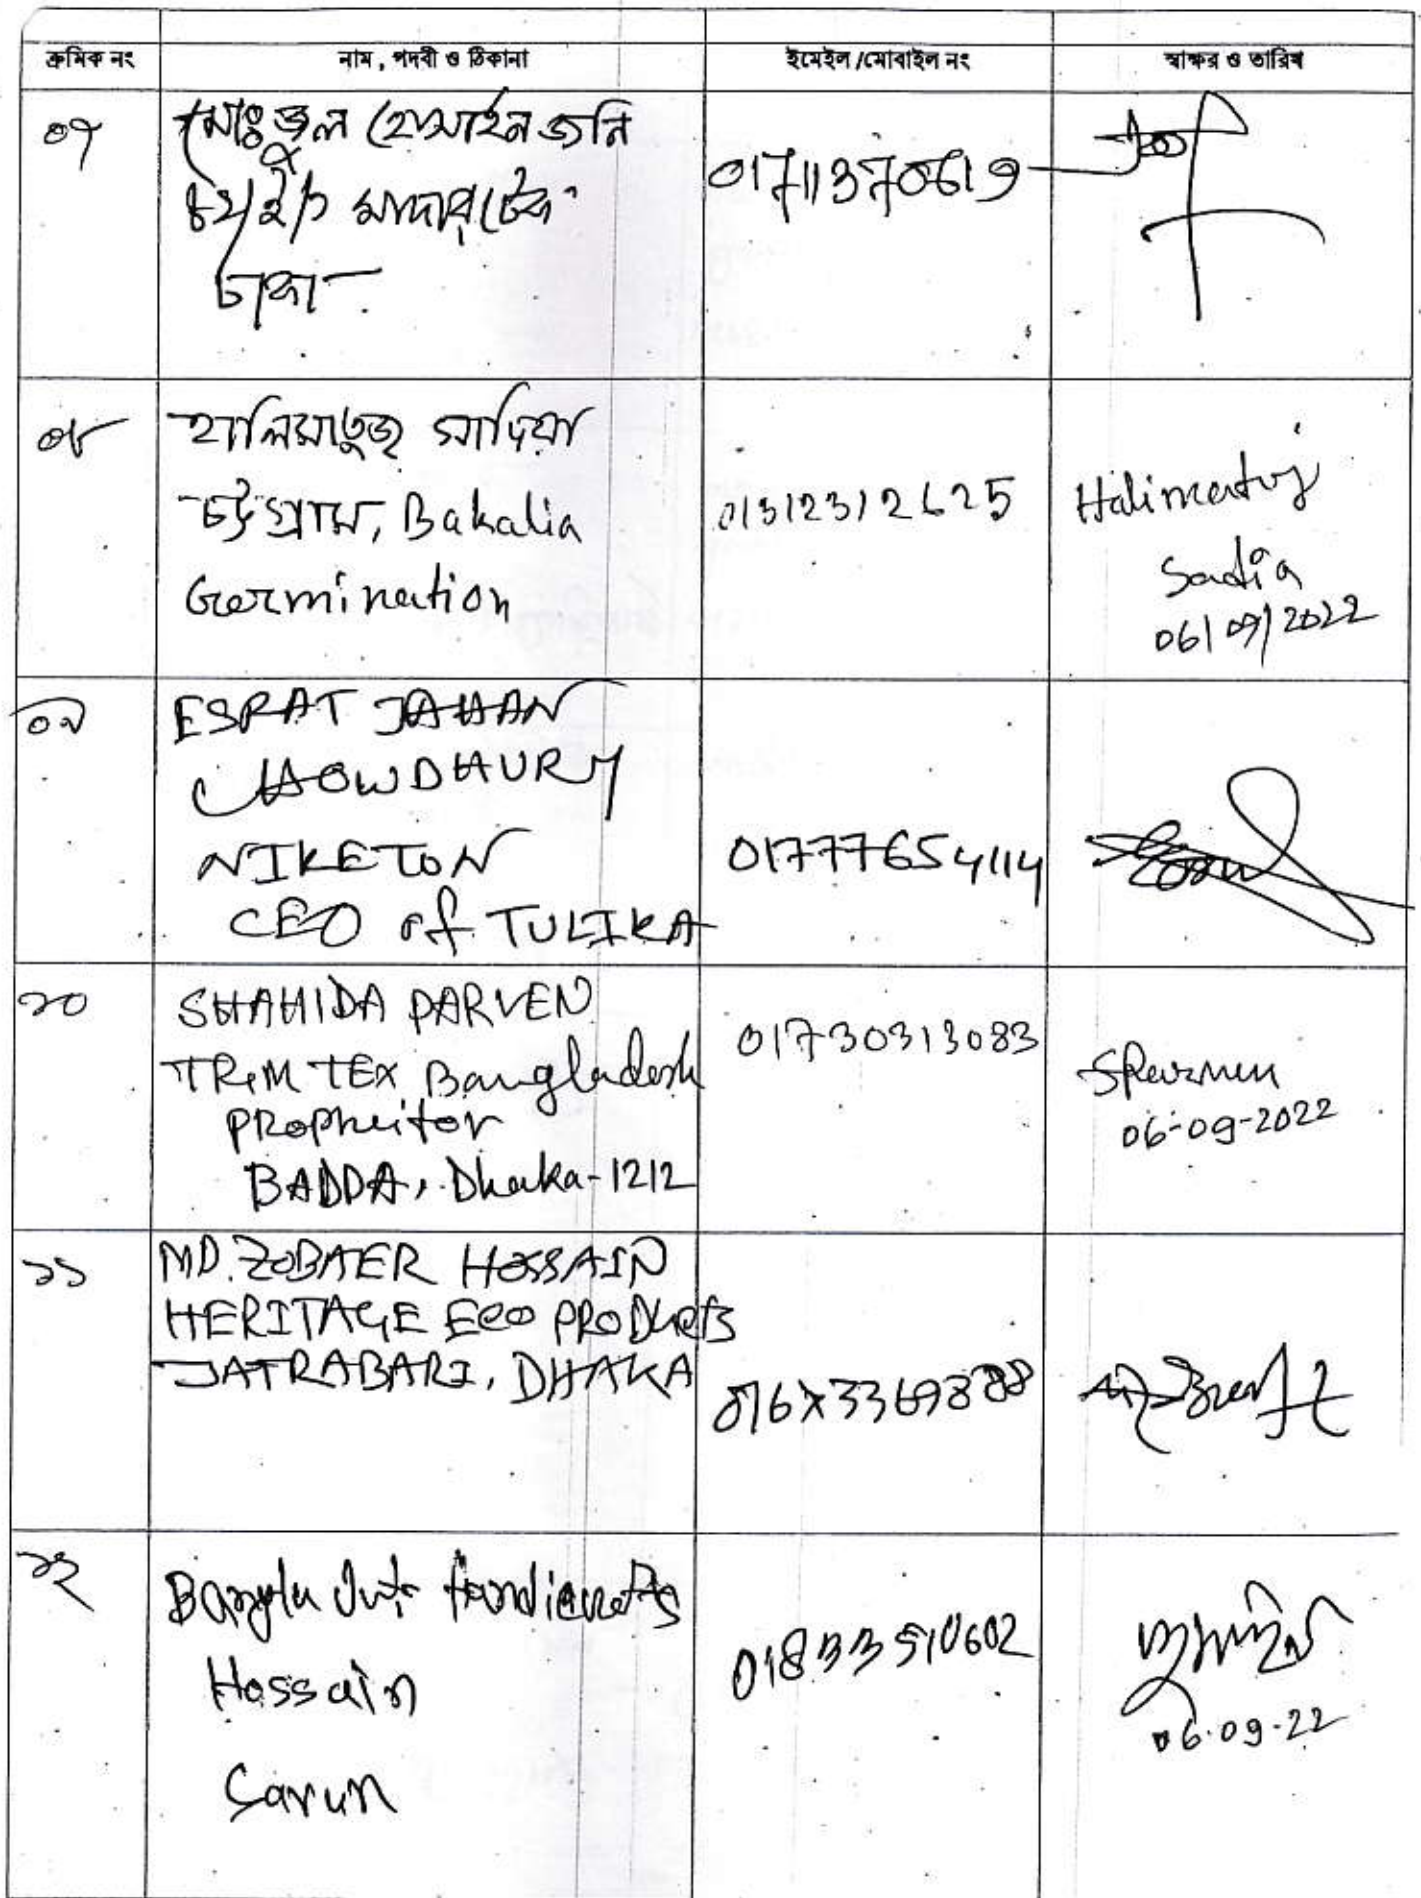 ক্রমিক নং নাম, পদবী ও ঠিকানা ইমেইল/মোবাইল নং স্বাক্ষর ও তারিখ
০৭ মোঃ জুল হোসাইন জনি
মাদারটেক
ঢাকা
01711370619
০৮ হালিমাতুজ সাদিয়া
চট্টগ্রাম, Bakalia
Germination
01312312625
Halimatuj
Sadia
06/09/2022
০৯ ESRAT JAHAN
CHOWDHURY
NIKETON
CEO of TULIKA
01777654114
১০ SHAHIDA PARVEN
TRIM TEX Bangladesh
Propheitor
BADDA, Dhaka-1212
01730313083
SParven
06-09-2022
১১ MD. ZOBAER HOSSAIN
HERITAGE Eco PRODUcts
JATRABARI, DHAKA
১২ Bangla Jute Handicrafts
Hossain
Sarun
01833510602
06.09-22